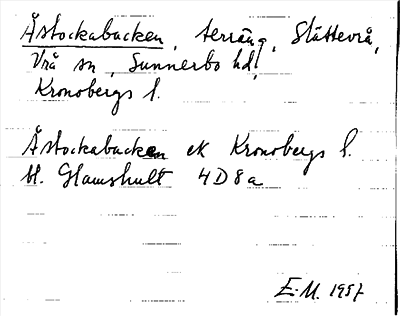 Åstockabacken, terräng, Slättevrå,
Vrå sn, Sunnerbo hd,
Kronobergs l.
Åstockabacken ek Kronobergs l.
bl. Glamshult 4D8a
E.M. 1957